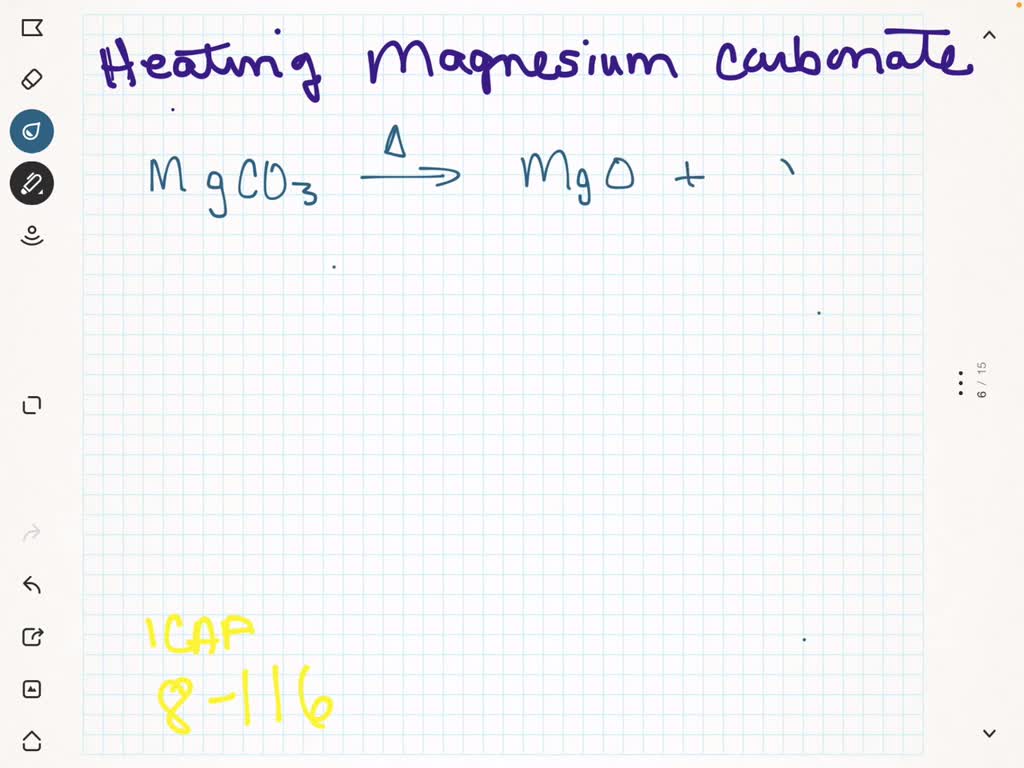 Heating Magnesium Carbonate
MgCO3 Δ→ MgO +
6 / 15
ICAP
8-116